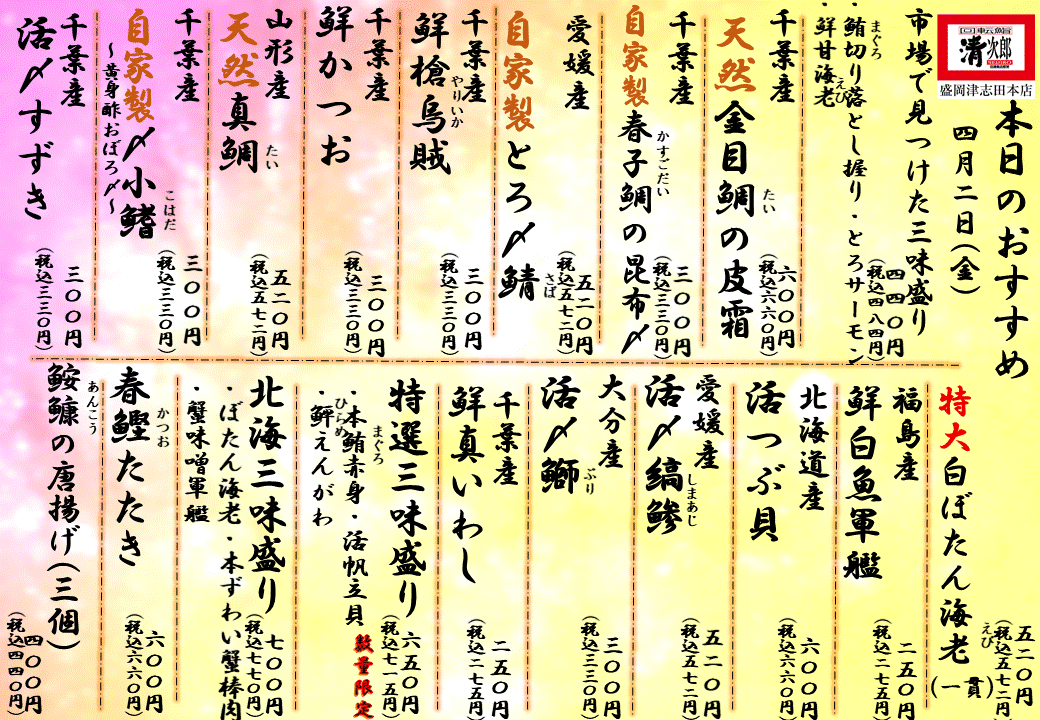 清次郎
盛岡津志田本店
本日のおすすめ
四月二日(金)
市場で見つけた三味盛り
四四〇円
(税込四八四円)
・鮪切り落とし握り・とろサーモン
まぐろ
・鮮甘海老
えび
千葉産
天然金目鯛の皮霜
たい
六〇〇円
(税込六六〇円)
千葉産
自家製春子鯛の昆布〆
かすごだい
三〇〇円
(税込三三〇円)
愛媛産
自家製とろ〆鯖
さば
五二〇円
(税込五七二円)
千葉産
鮮槍烏賊
やりいか
三〇〇円
(税込三三〇円)
千葉産
鮮かつお
三〇〇円
(税込三三〇円)
山形産
天然真鯛
たい
五二〇円
(税込五七二円)
千葉産
自家製〆小鰭
こはだ
~黄身酢おぼろ〆~
三〇〇円
(税込三三〇円)
千葉産
活〆すずき
三〇〇円
(税込三三〇円)
特大白ぼたん海老(一貫)
えび
五二〇円
(税込五七二円)
福島産
鮮白魚軍艦
二五〇円
(税込二七五円)
北海道産
活つぶ貝
六〇〇円
(税込六六〇円)
愛媛産
活〆縞鯵
しまあじ
五二〇円
(税込五七二円)
大分産
活〆鰤
ぶり
三〇〇円
(税込三三〇円)
千葉産
鮮真いわし
二五〇円
(税込二七五円)
特選三味盛り
六五〇円
(税込七一五円)
数量限定
・本鮪赤身・活帆立貝
まぐろ
・鮃えんがわ
ひらめ
北海三味盛り
七〇〇円
(税込七七〇円)
・ぼたん海老・本ずわい蟹棒肉
・蟹味噌軍艦
春鰹たたき
かつお
六〇〇円
(税込六六〇円)
鮟鱇の唐揚げ(三個)
あんこう
四〇〇円
(税込四四〇円)